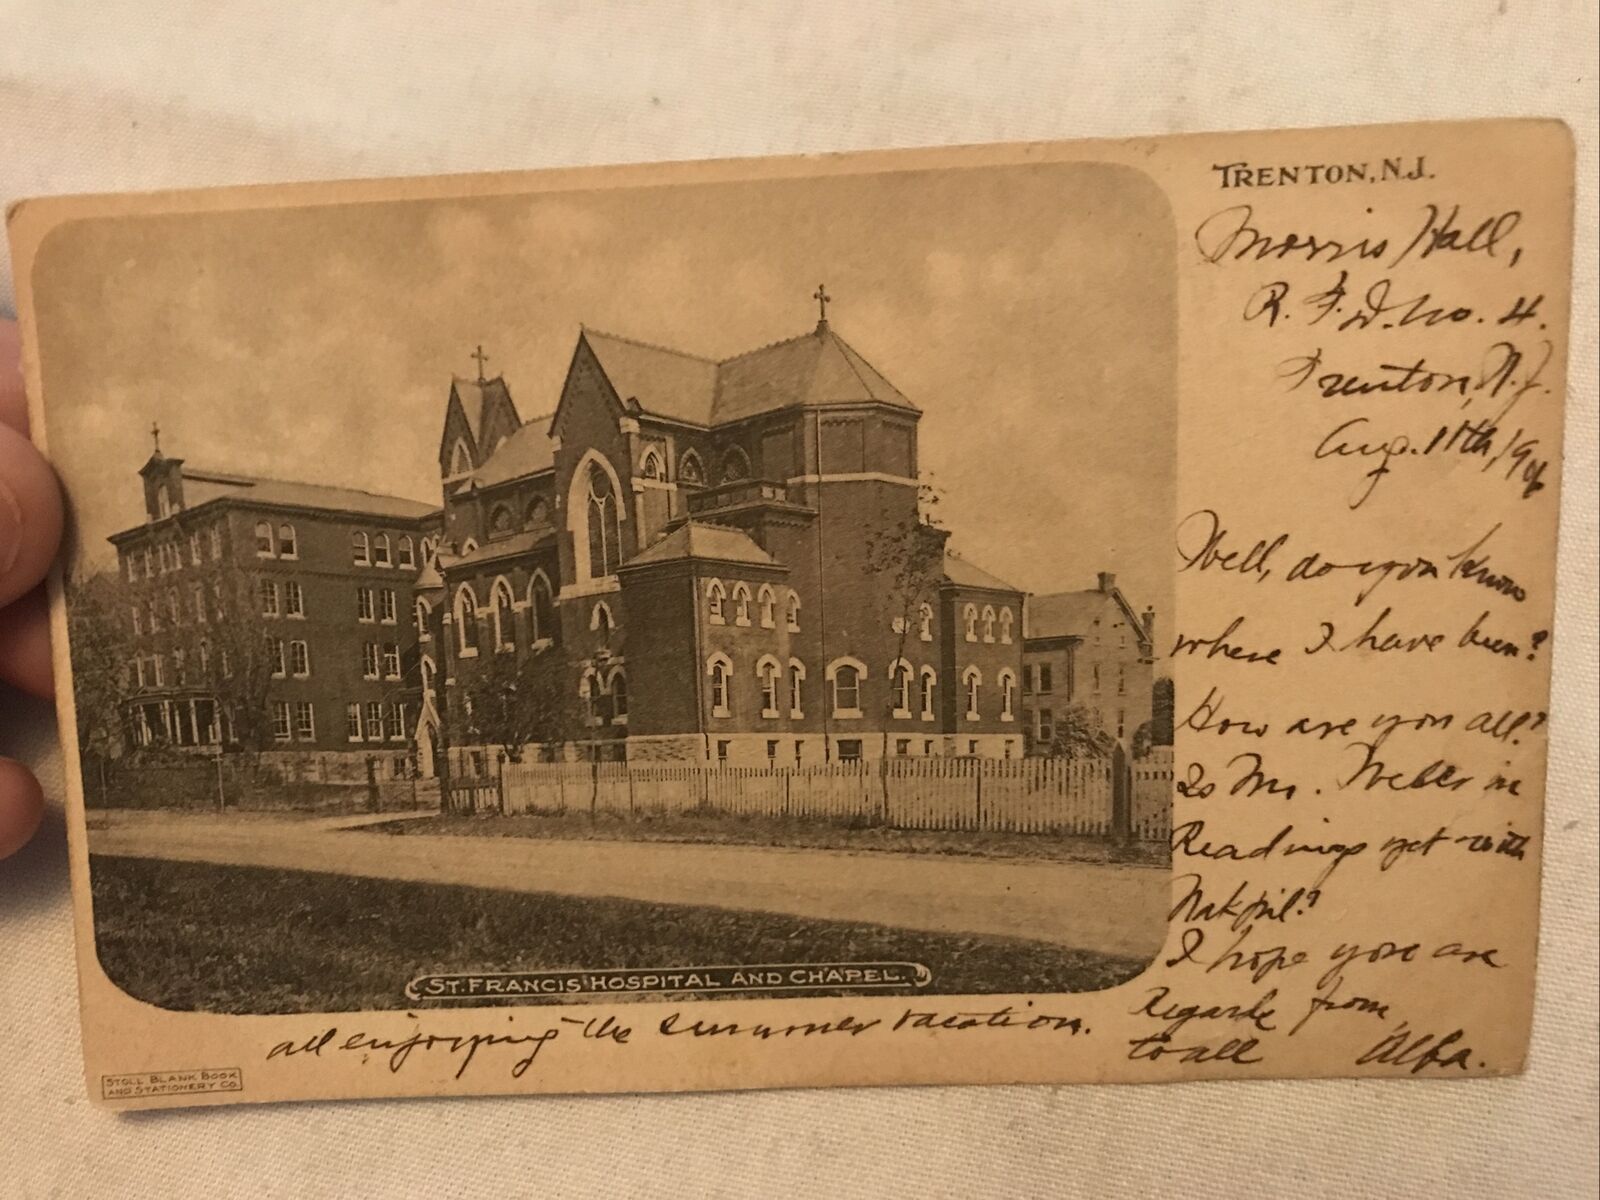 TRENTON, N.J.
Morris Hall,
R. F. D. No. 4.
Trenton, N.J.
Aug. 11th, 
Well, do you know
where I have been?
How are you all?
Is Mr. in
Reading yet with
I hope you are
all enjoying the summer vacation.
Regards from
to all Alba.
ST. FRANCIS HOSPITAL AND CHAPEL.
STOLL BLANK BOOK
AND STATIONERY CO.